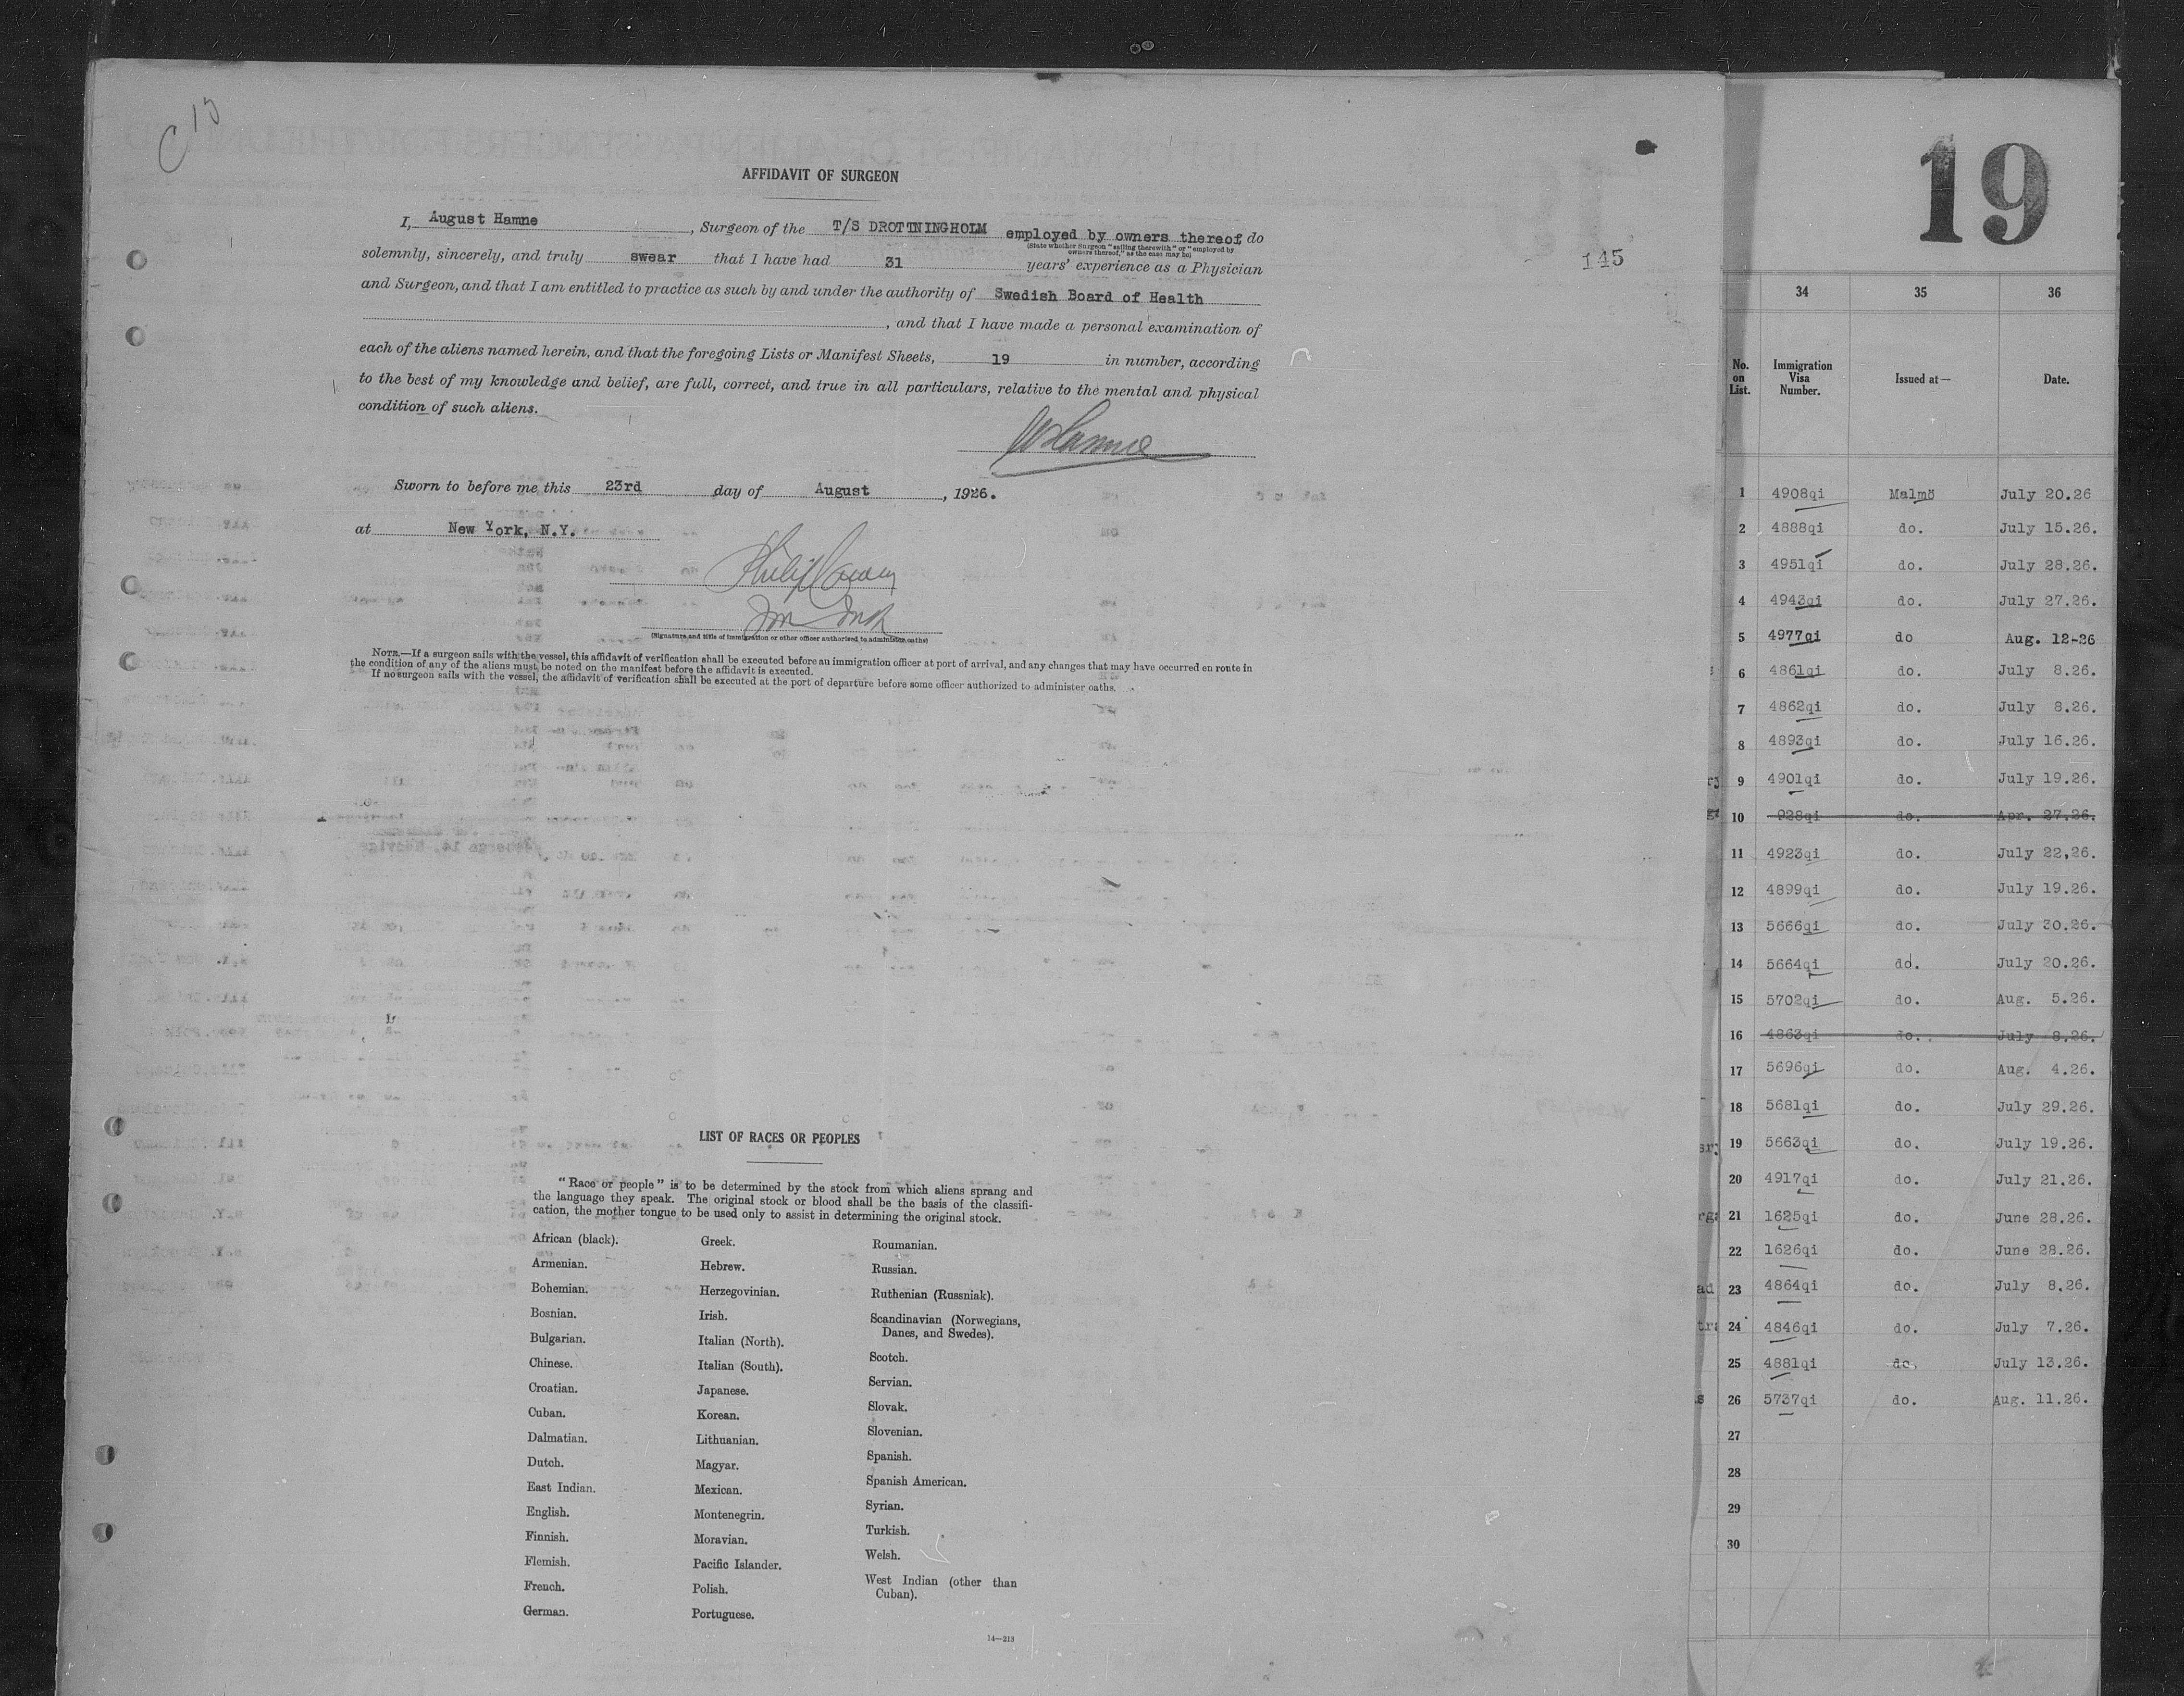 C 15
AFFIDAVIT OF SURGEON
I, August Hamne, Surgeon of the T/S DROTTNINGHOLM employed by owners thereof do
(State whether Surgeon "sailing therewith" or "employed by
owners thereof," as the case may be)
solemnly, sincerely, and truly swear that I have had 31 years' experience as a Physician
and Surgeon, and that I am entitled to practice as such by and under the authority of Swedish Board of Health
, and that I have made a personal examination of
each of the aliens named herein, and that the foregoing Lists or Manifest Sheets, 19 in number, according
to the best of my knowledge and belief, are full, correct, and true in all particulars, relative to the mental and physical
condition of such aliens.
Sworn to before me this 23rd day of August, 1926.
at New York, N.Y.
(Signature and title of immigration or other officer authorized to administer oaths)
NOTE.—If a surgeon sails with the vessel, this affidavit of verification shall be executed before an immigration officer at port of arrival, and any changes that may have occurred en route in
the condition of any of the aliens must be noted on the manifest before the affidavit is executed.
If no surgeon sails with the vessel, the affidavit of verification shall be executed at the port of departure before some officer authorized to administer oaths.
145
LIST OF RACES OR PEOPLES
"Race or people" is to be determined by the stock from which aliens sprang and
the language they speak. The original stock or blood shall be the basis of the classifi-
cation, the mother tongue to be used only to assist in determining the original stock.
African (black).
Armenian.
Bohemian.
Bosnian.
Bulgarian.
Chinese.
Croatian.
Cuban.
Dalmatian.
Dutch.
East Indian.
English.
Finnish.
Flemish.
French.
German.
Greek.
Hebrew.
Herzegovinian.
Irish.
Italian (North).
Italian (South).
Japanese.
Korean.
Lithuanian.
Magyar.
Mexican.
Montenegrin.
Moravian.
Pacific Islander.
Polish.
Portuguese.
Roumanian.
Russian.
Ruthenian (Russniak).
Scandinavian (Norwegians,
Danes, and Swedes).
Scotch.
Servian.
Slovak.
Slovenian.
Spanish.
Spanish American.
Syrian.
Turkish.
Welsh.
West Indian (other than
Cuban).
14—213
19
34 35 36
No. on List. Immigration Visa Number. Issued at— Date.
1 4908qi Malmö July 20.26
2 4888qi do. July 15.26.
3 4951qi do. July 28.26.
4 4943qi do. July 27.26.
5 4977qi do Aug. 12-26
6 4861qi do. July 8.26.
7 4862qi do. July 8.26.
8 4893qi do. July 16.26.
9 4901qi do. July 19.26.
10 928qi do. Apr. 27.26.
11 4923qi do. July 22,26.
12 4899qi do. July 19.26.
13 5666qi do. July 30.26.
14 5664qi do. July 20.26.
15 5702qi do. Aug. 5.26.
16 4863qi do. July 8.26.
17 5696qi do. Aug. 4.26.
18 5681qi do. July 29.26.
19 5663qi do. July 19.26.
20 4917qi do. July 21.26.
21 1625qi do. June 28.26.
22 1626qi do. June 28.26.
23 4864qi do. July 8.26.
24 4846qi do. July 7.26.
25 4881qi do. July 13.26.
26 5737qi do. Aug. 11.26.
27
28
29
30